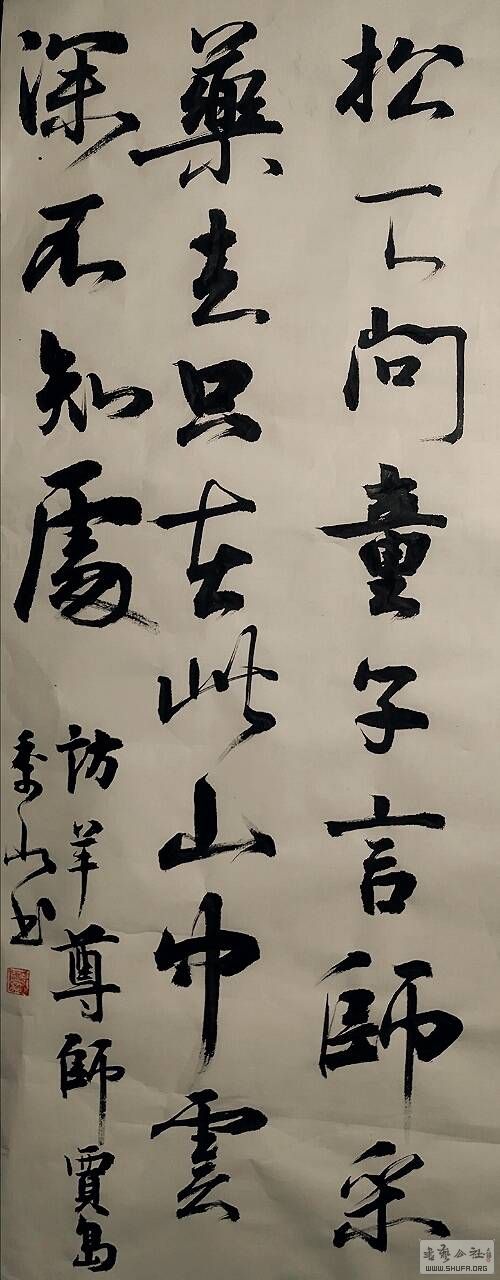 松下问童子言師采
藥去只在此山中雲
深不知處
訪羊尊師 賈島
山书
书艺公社
WWW.SHUFA.ORG